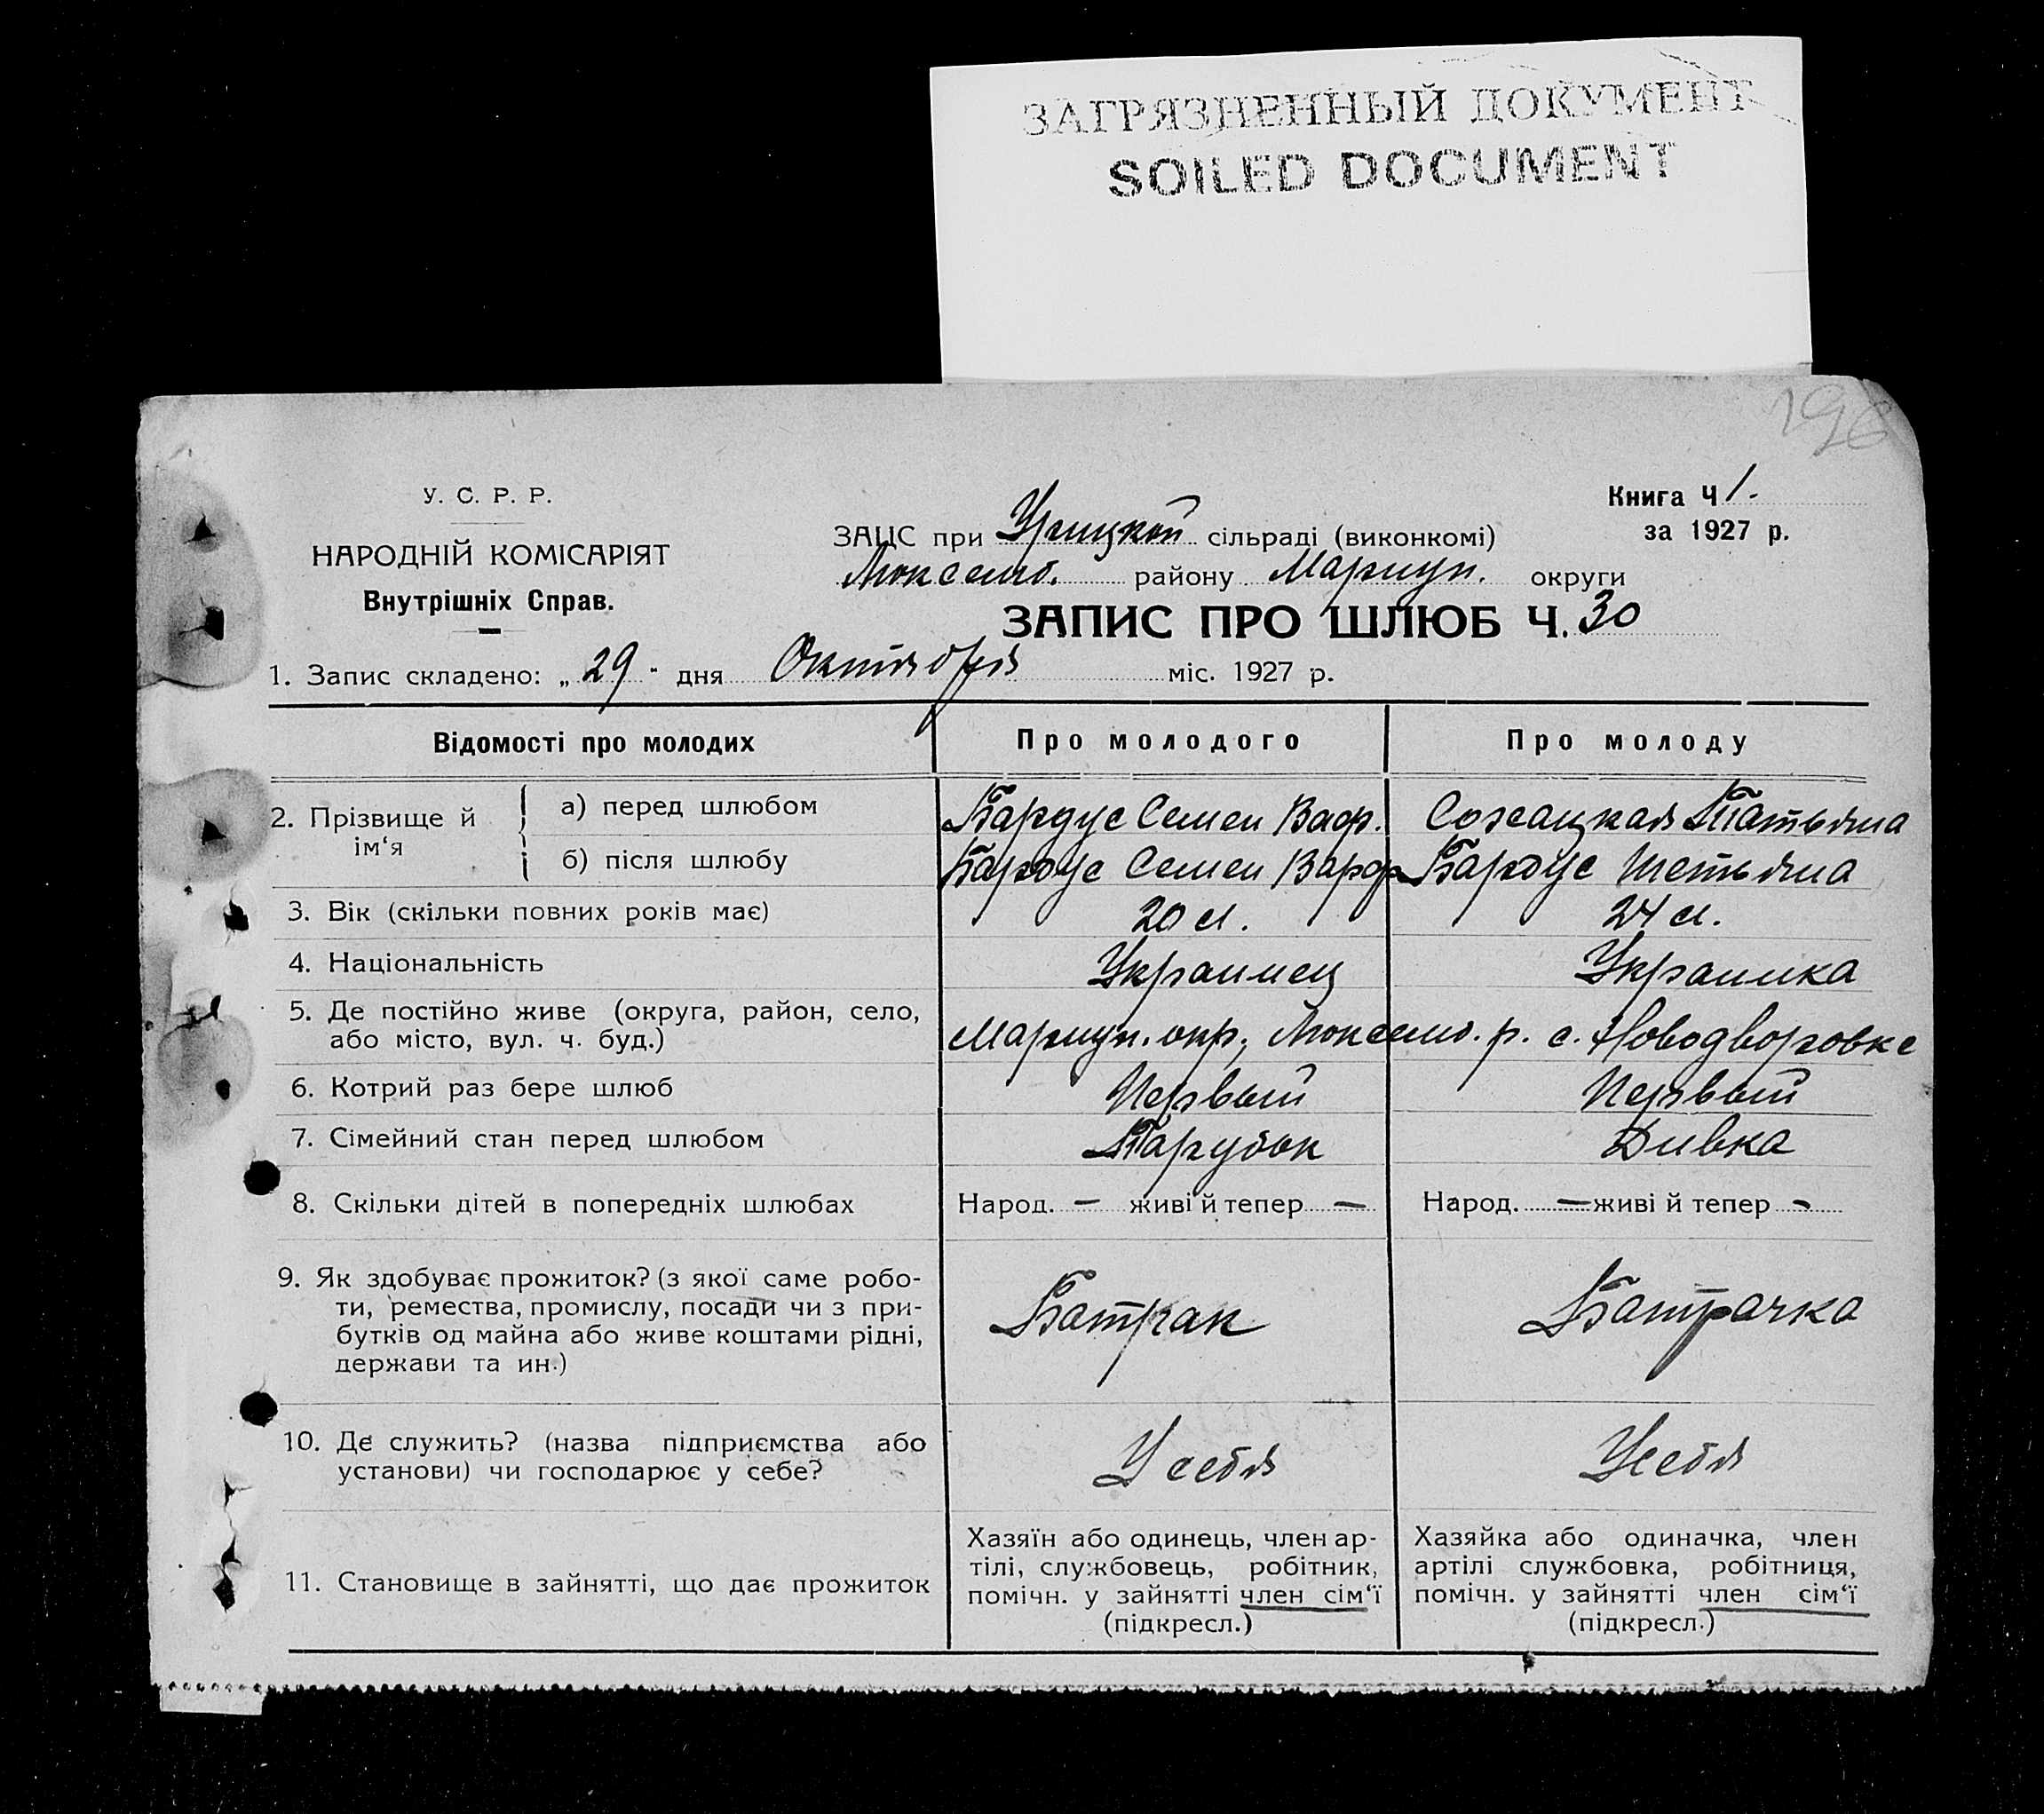 ЗАГРЯЗНЕННЫЙ ДОКУМЕНТ
SOILED DOCUMENT
196
У. С. Р. Р.
НАРОДНІЙ КОМІСАРІЯТ
Внутрішніх Справ.
Книга Ч 1.
за 1927 р.
ЗАЦС при Урицкой сільраді (виконкомі)
району Мариуп. округи
ЗАПИС ПРО ШЛЮБ Ч. 30
1. Запис складено: „ 29 " дня Октября міс. 1927 р.
Відомості про молодих Про молодого Про молоду
2. Прізвище й ім‘я
а) перед шлюбом Бардус Семен Татьяна
б) після шлюбу Бардус Семен Бардус
3. Вік (скільки повних років має) 20 л. 24 л.
4. Національність Украинец Украинка
5. Де постійно живе (округа, район, село,
або місто, вул. ч. буд.) Мариуп. окр., р. с. Новодворовке
6. Котрий раз бере шлюб Первый Первый
7. Сімейний стан перед шлюбом Парубок Дивка
8. Скільки дітей в попередніх шлюбах Народ. — живі й тепер — Народ. — живі й тепер -
9. Як здобуває прожиток? (з якої саме робо-
ти, ремества, промислу, посади чи з при-
бутків од майна або живе коштами рідні,
держави та ин.)
Батрак Батрачка
10. Де служить? (назва підприємства або
установи) чи господарює у себе?
У себя У себя
11. Становище в зайнятті, що дає прожиток
Хазяїн або одинець, член ар-
тілі, службовець, робітник,
помічн. у зайнятті член сім‘ї
(підкресл.)
Хазяйка або одиначка, член
артілі службовка, робітниця,
помічн. у зайнятті член сім‘ї
(підкресл.)